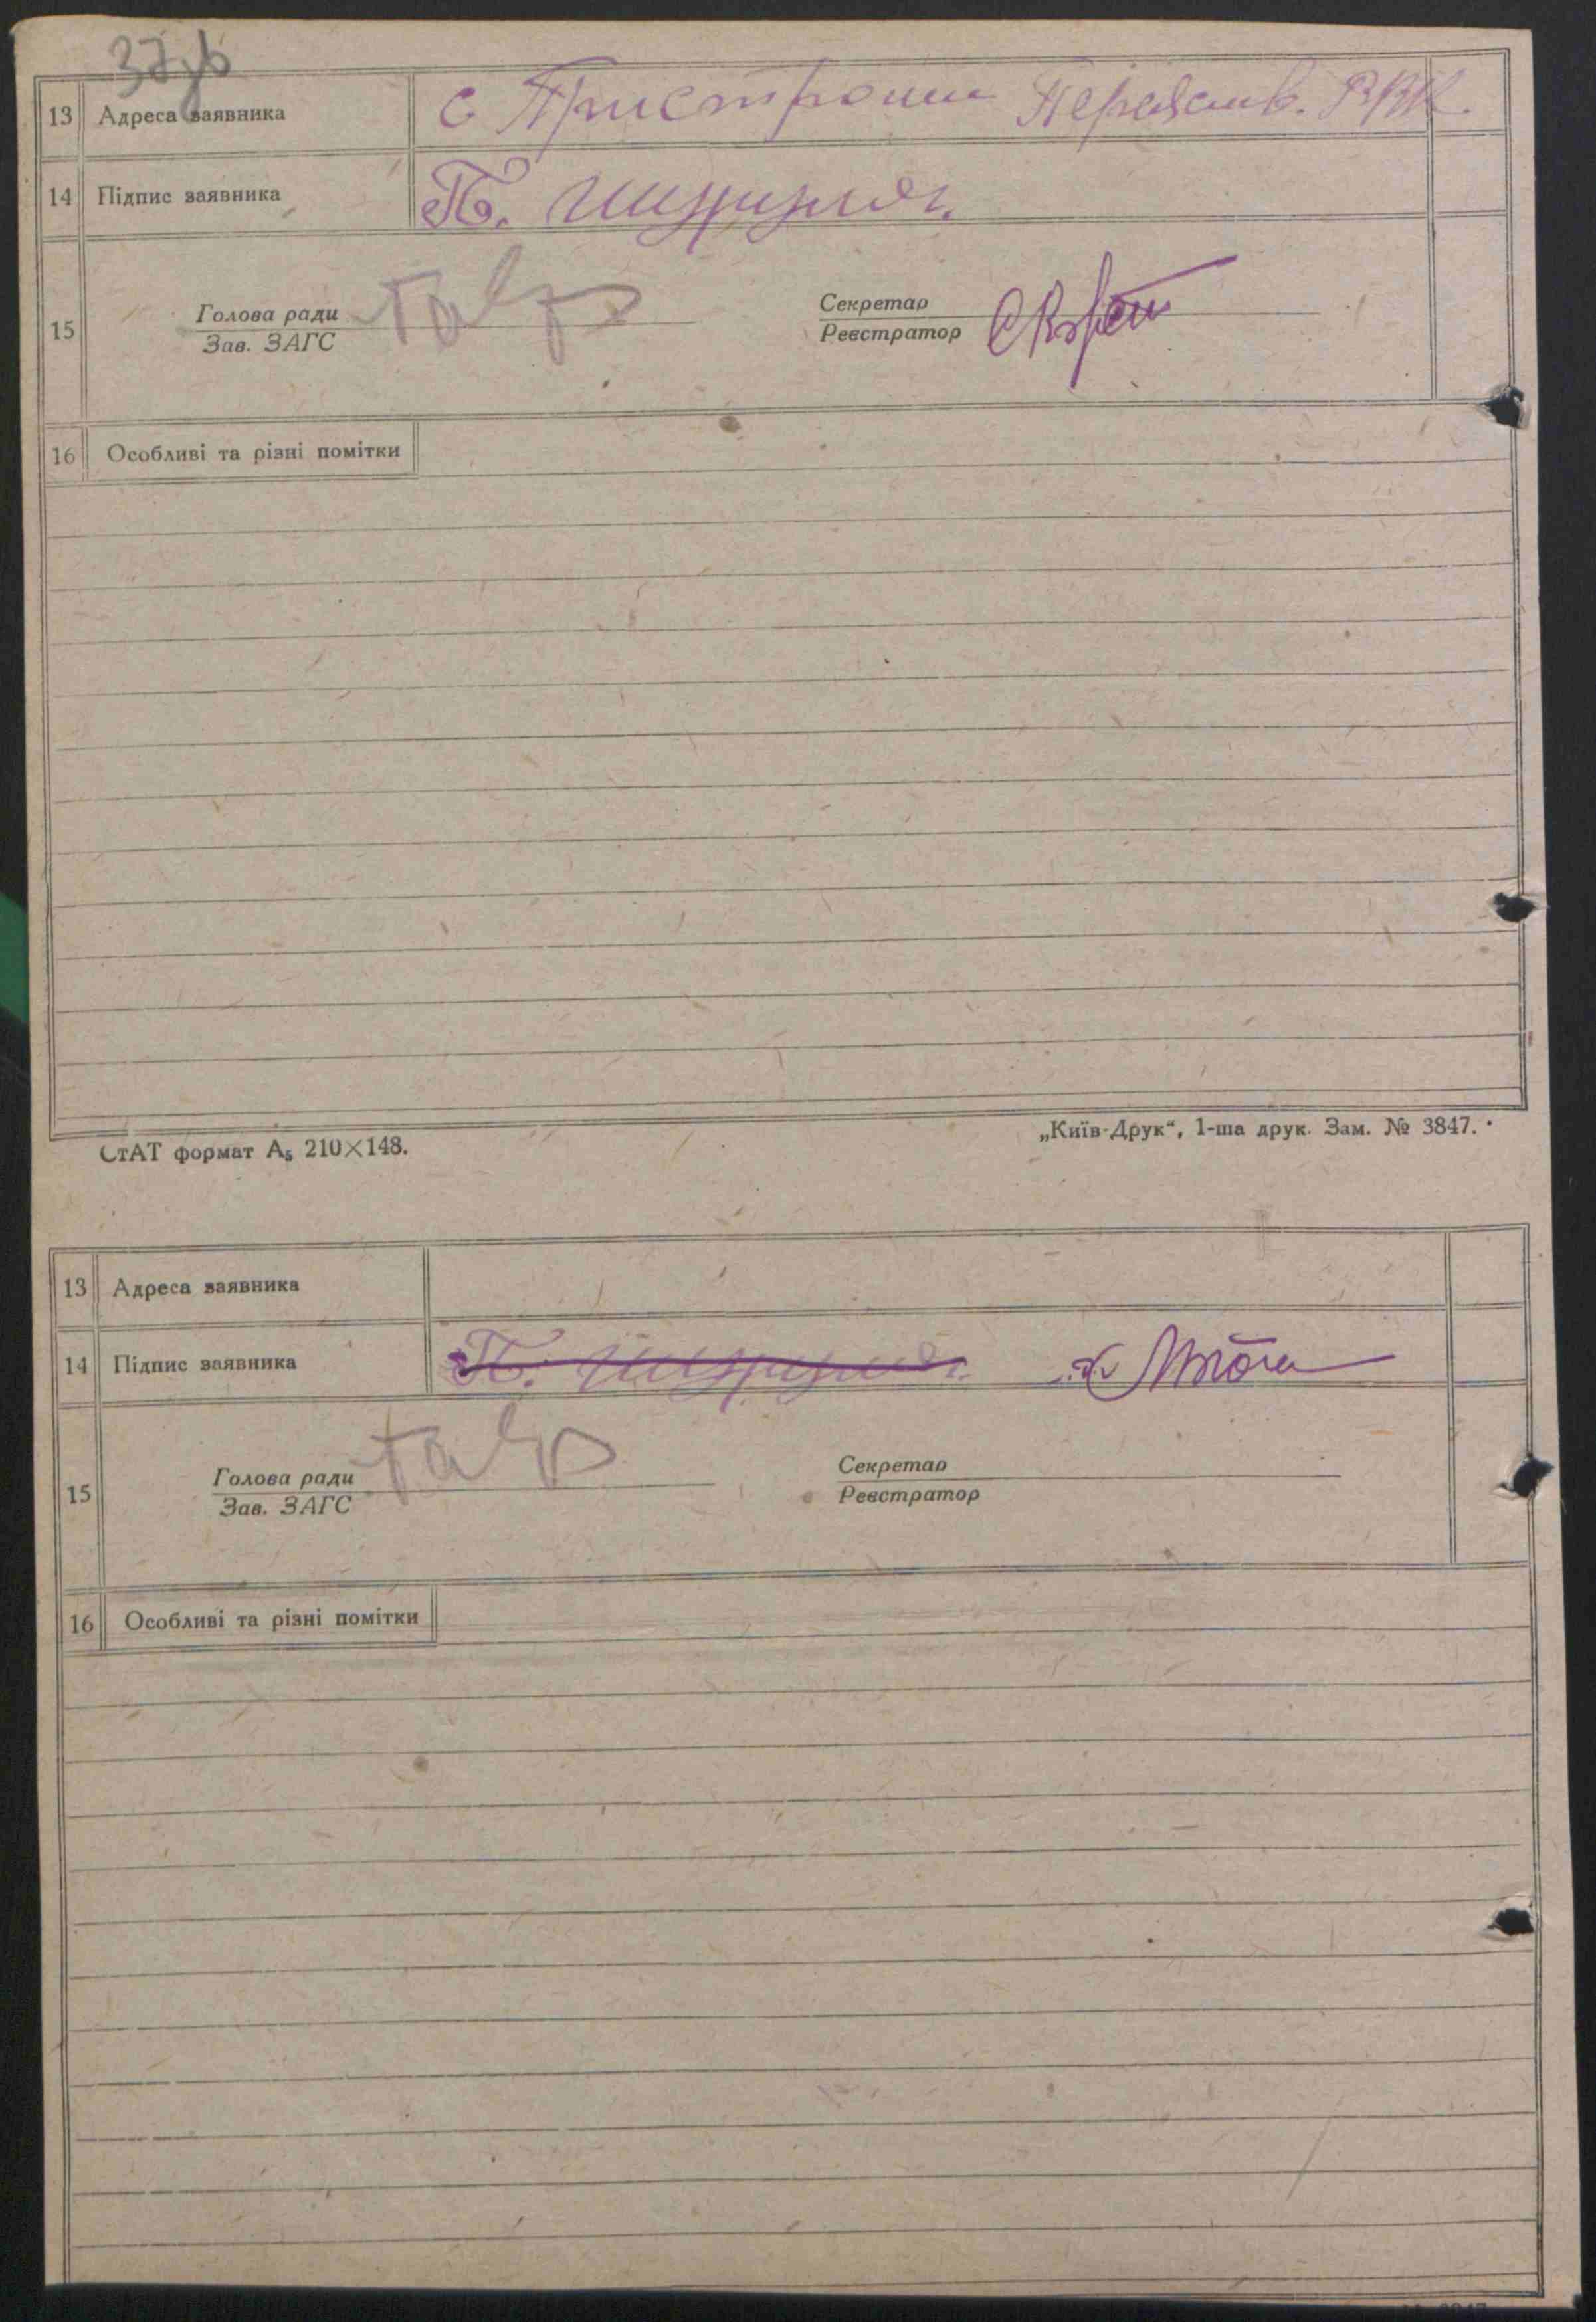 37зв
13 Адреса заявника с Пристроми Переяслав. РВК.
14 Підпис заявника П.
15 Голова ради
Зав. ЗАГС
Секретар
Реєстратор
16 Особливі та різні помітки
СтАТ формат А₅ 210×148.
„Київ-Друк“, 1-ша друк. Зам. № 3847.
13 Адреса заявника
14 Підпис заявника
15 Голова ради
Зав. ЗАГС
Секретар
Реєстратор
16 Особливі та різні помітки